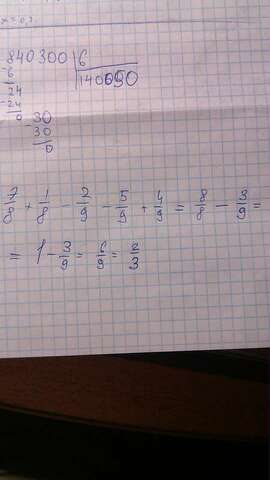 840300 | 6
- 6 140050
24
- 24
0 30
- 30
0
7/8 + 1/8 - 2/9 - 5/9 + 4/9 = 8/8 - 3/9 =
= 1 - 3/9 = 6/9 = 2/3